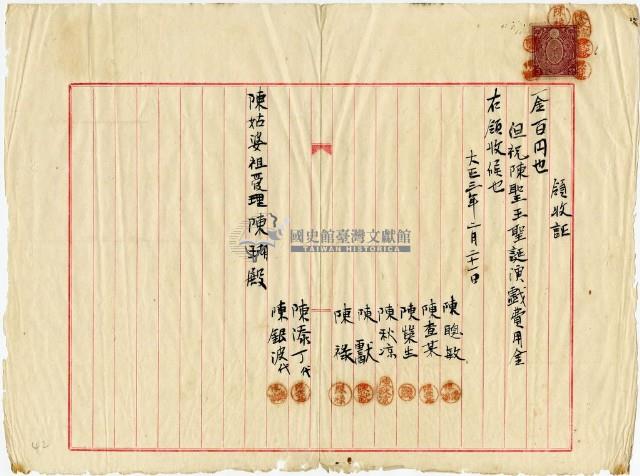 領收証
一金百円也
但祝陳聖王聖誕演戲費用金
右領收候也
大正三年二月二十一日
陳聰敏
陳查某
陳燦生
陳秋凉
陳獻
陳祿
陳添丁代
陳銀波代
陳姑婆祖管理陳瑚殿
國史館臺灣文獻館
TAIWAN HISTORICA
42